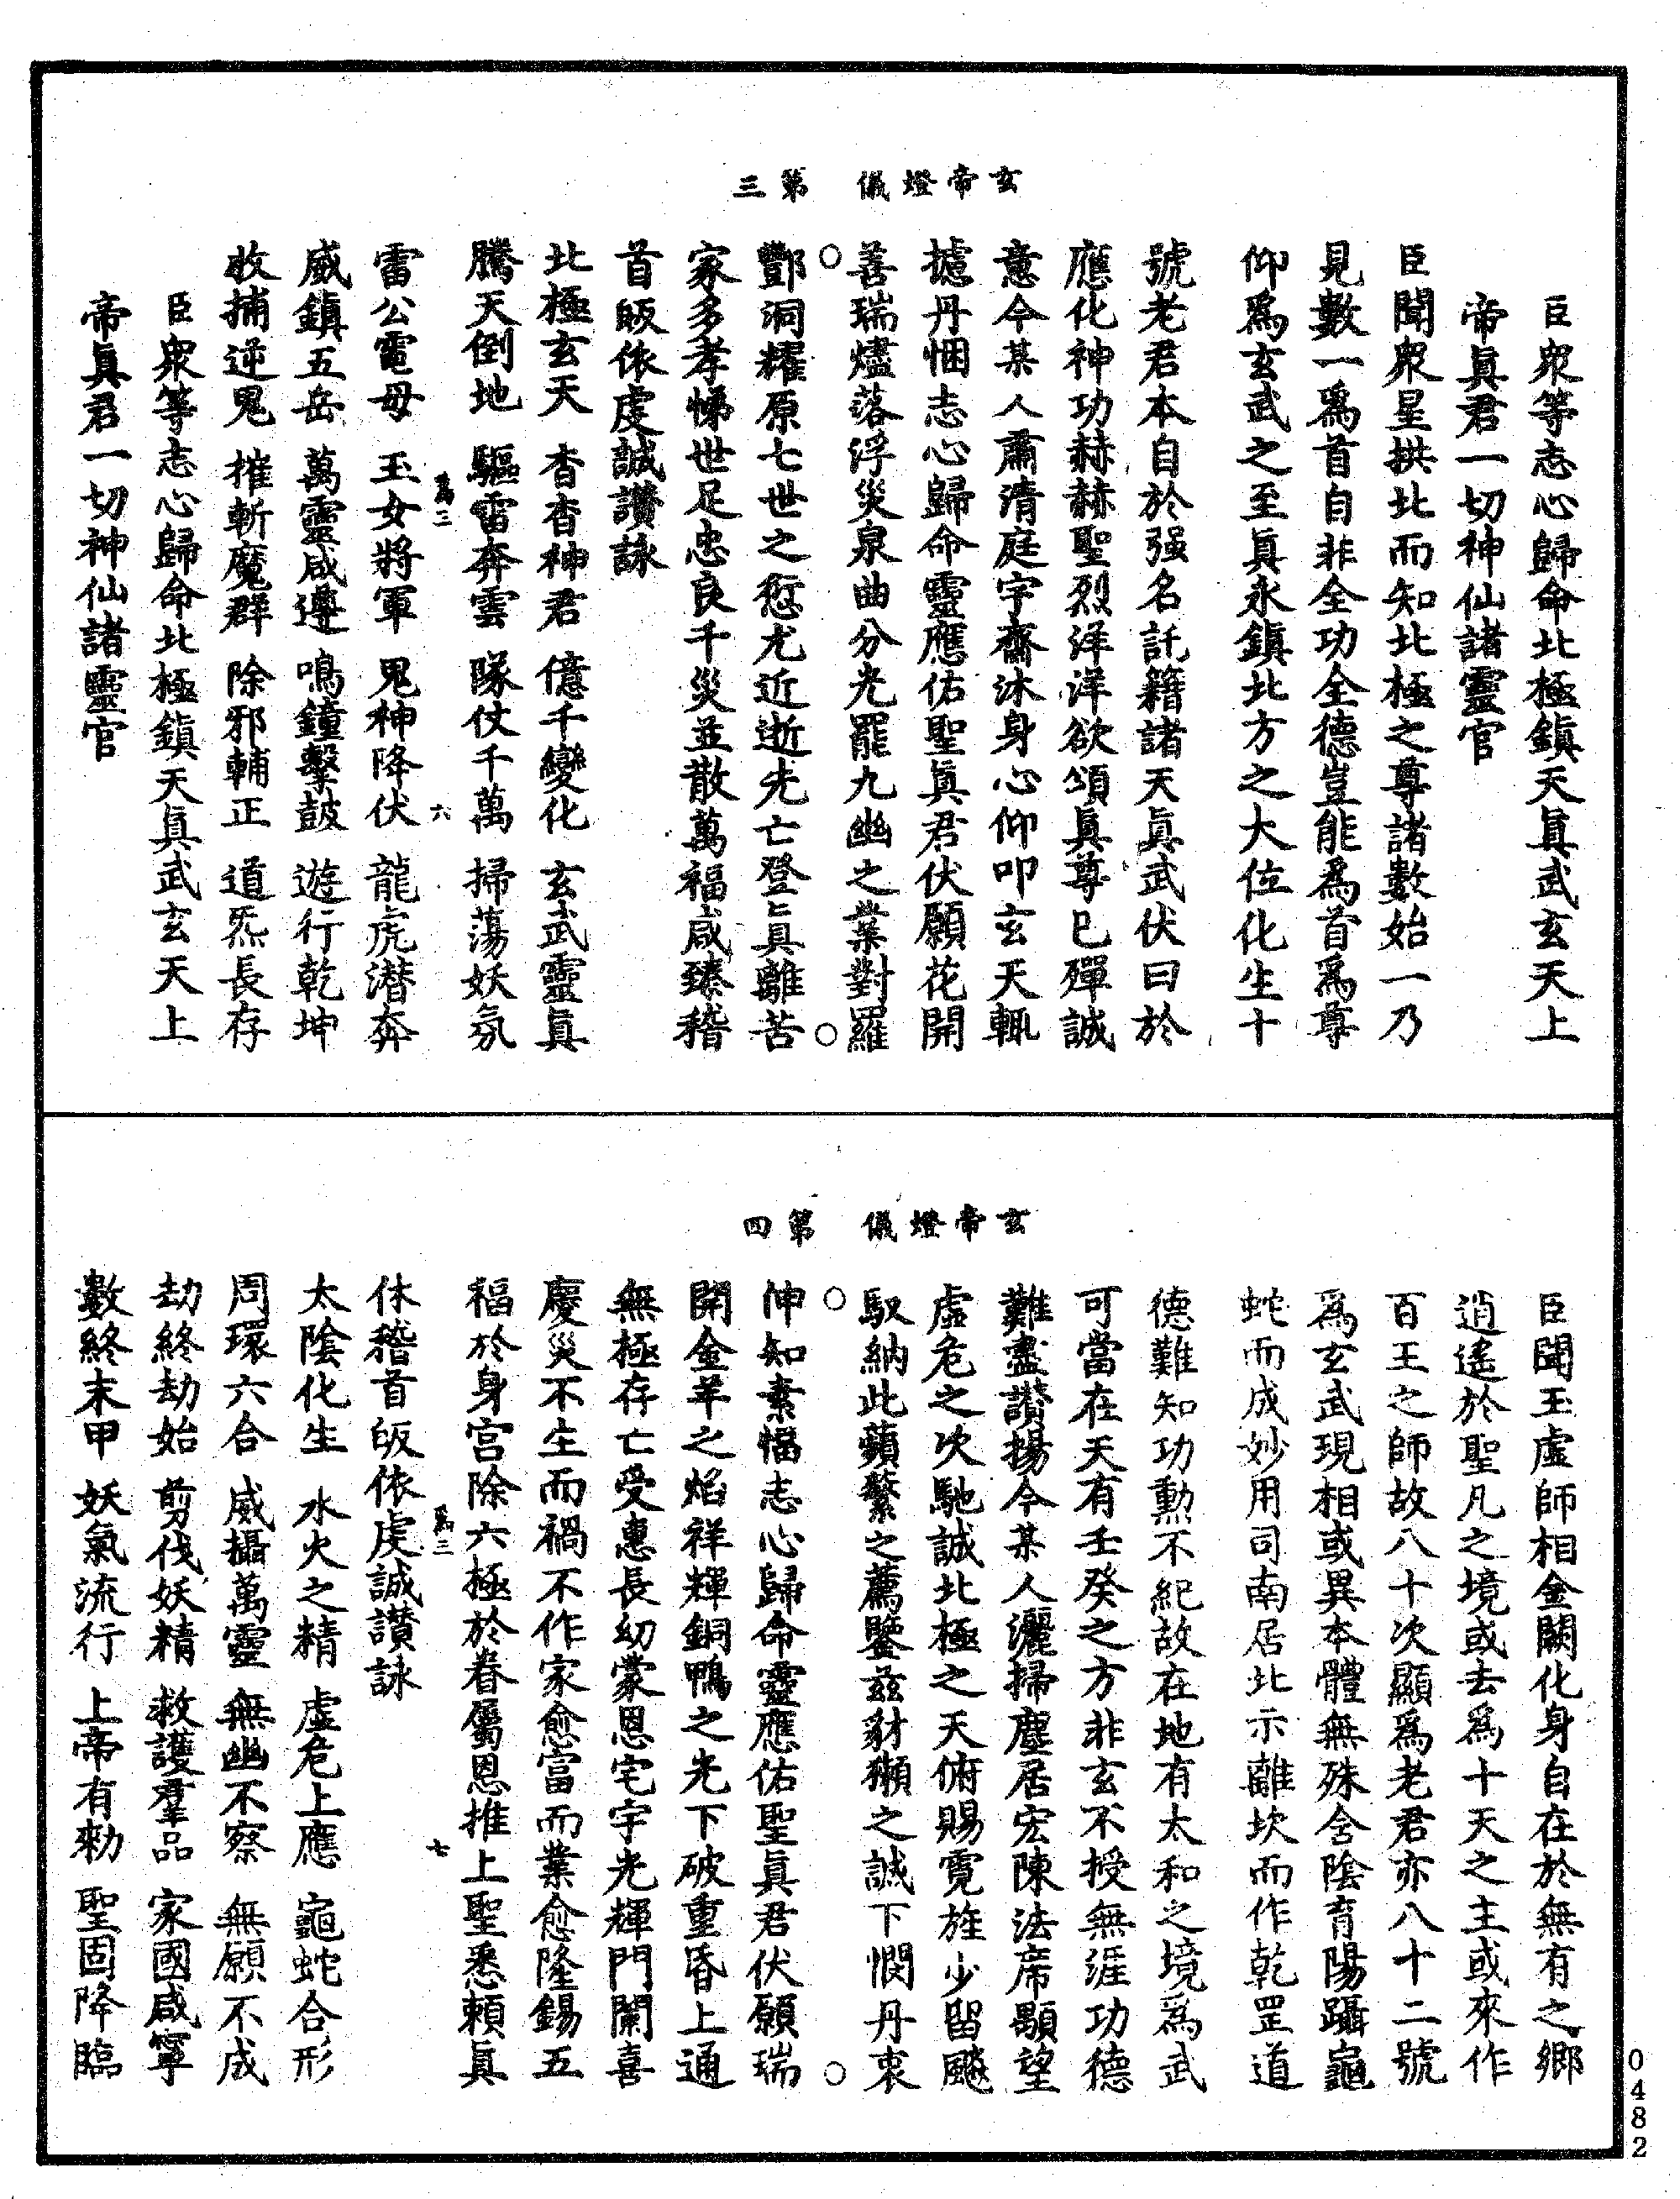 玄帝燈儀　第三
臣衆等志心歸命北極鎮天眞武玄天上
帝眞君一切神仙諸靈官
臣聞衆星拱北而知北極之尊諸數始一乃
見數一爲首自非全功全德豈能爲首爲尊
仰爲玄武之至眞永鎮北方之大位化生十
號老君本自於强名託籍諸天眞武伏曰於
應化神功赫赫聖烈洋洋欲頌眞尊已殫誠
意今某人肅清庭宇齋沐身心仰叩玄天輒
攄丹悃志心歸命靈應佑聖眞君伏願花開
善瑞燼落浮災泉曲分光罷九幽之業對羅
酆洞耀原七世之愆尤近逝先亡登眞離苦
家多孝悌世足忠良千災並散萬福咸臻稽
首皈依虔誠讚詠
北極玄天　杳杳神君　億千變化　玄武靈眞
騰天倒地　驅雷奔雲　隊仗千萬　掃蕩妖氛
爲三　六
雷公電母　玉女將軍　鬼神降伏　龍虎潛奔
威鎮五岳　萬靈咸遵　鳴鐘擊鼓　遊行乾坤
收捕逆鬼　摧斬魔群　除邪輔正　道炁長存
臣衆等志心歸命北極鎮天眞武玄天上
帝眞君一切神仙諸靈官
玄帝燈儀　第四
臣聞玉虛師相金闕化身自在於無有之鄉
逍遙於聖凡之境或去爲十天之主或來作
百王之師故八十次顯爲老君亦八十二號
爲玄武現相或異本體無殊含陰育陽躡龜
蛇而成妙用司南居北示離坎而作乾罡道
德難知功勳不紀故在地有太和之境爲武
可當在天有壬癸之方非玄不授無涯功德
難盡讚揚今某人灑掃塵居宏陳法席顒望
虛危之次馳誠北極之天俯賜霓旌少留飈
馭納此蘋蘩之薦鑒茲豺獺之誠下憫丹衷
伸知素悃志心歸命靈應佑聖眞君伏願瑞
開金羊之焰祥輝銅鴨之光下破重昏上通
無極存亡受惠長幼蒙恩宅宇光輝門闌喜
慶災不生而禍不作家愈富而業愈隆錫五
福於身宮除六極於眷屬恩推上聖悉賴眞
爲三　七
休稽首皈依虔誠讚詠
太陰化生　水火之精　虛危上應　龜蛇合形
周環六合　威攝萬靈　無幽不察　無願不成
劫終劫始　剪伐妖精　救護羣品　家國咸寧
數終末甲　妖氣流行　上帝有勑　聖固降臨
0482